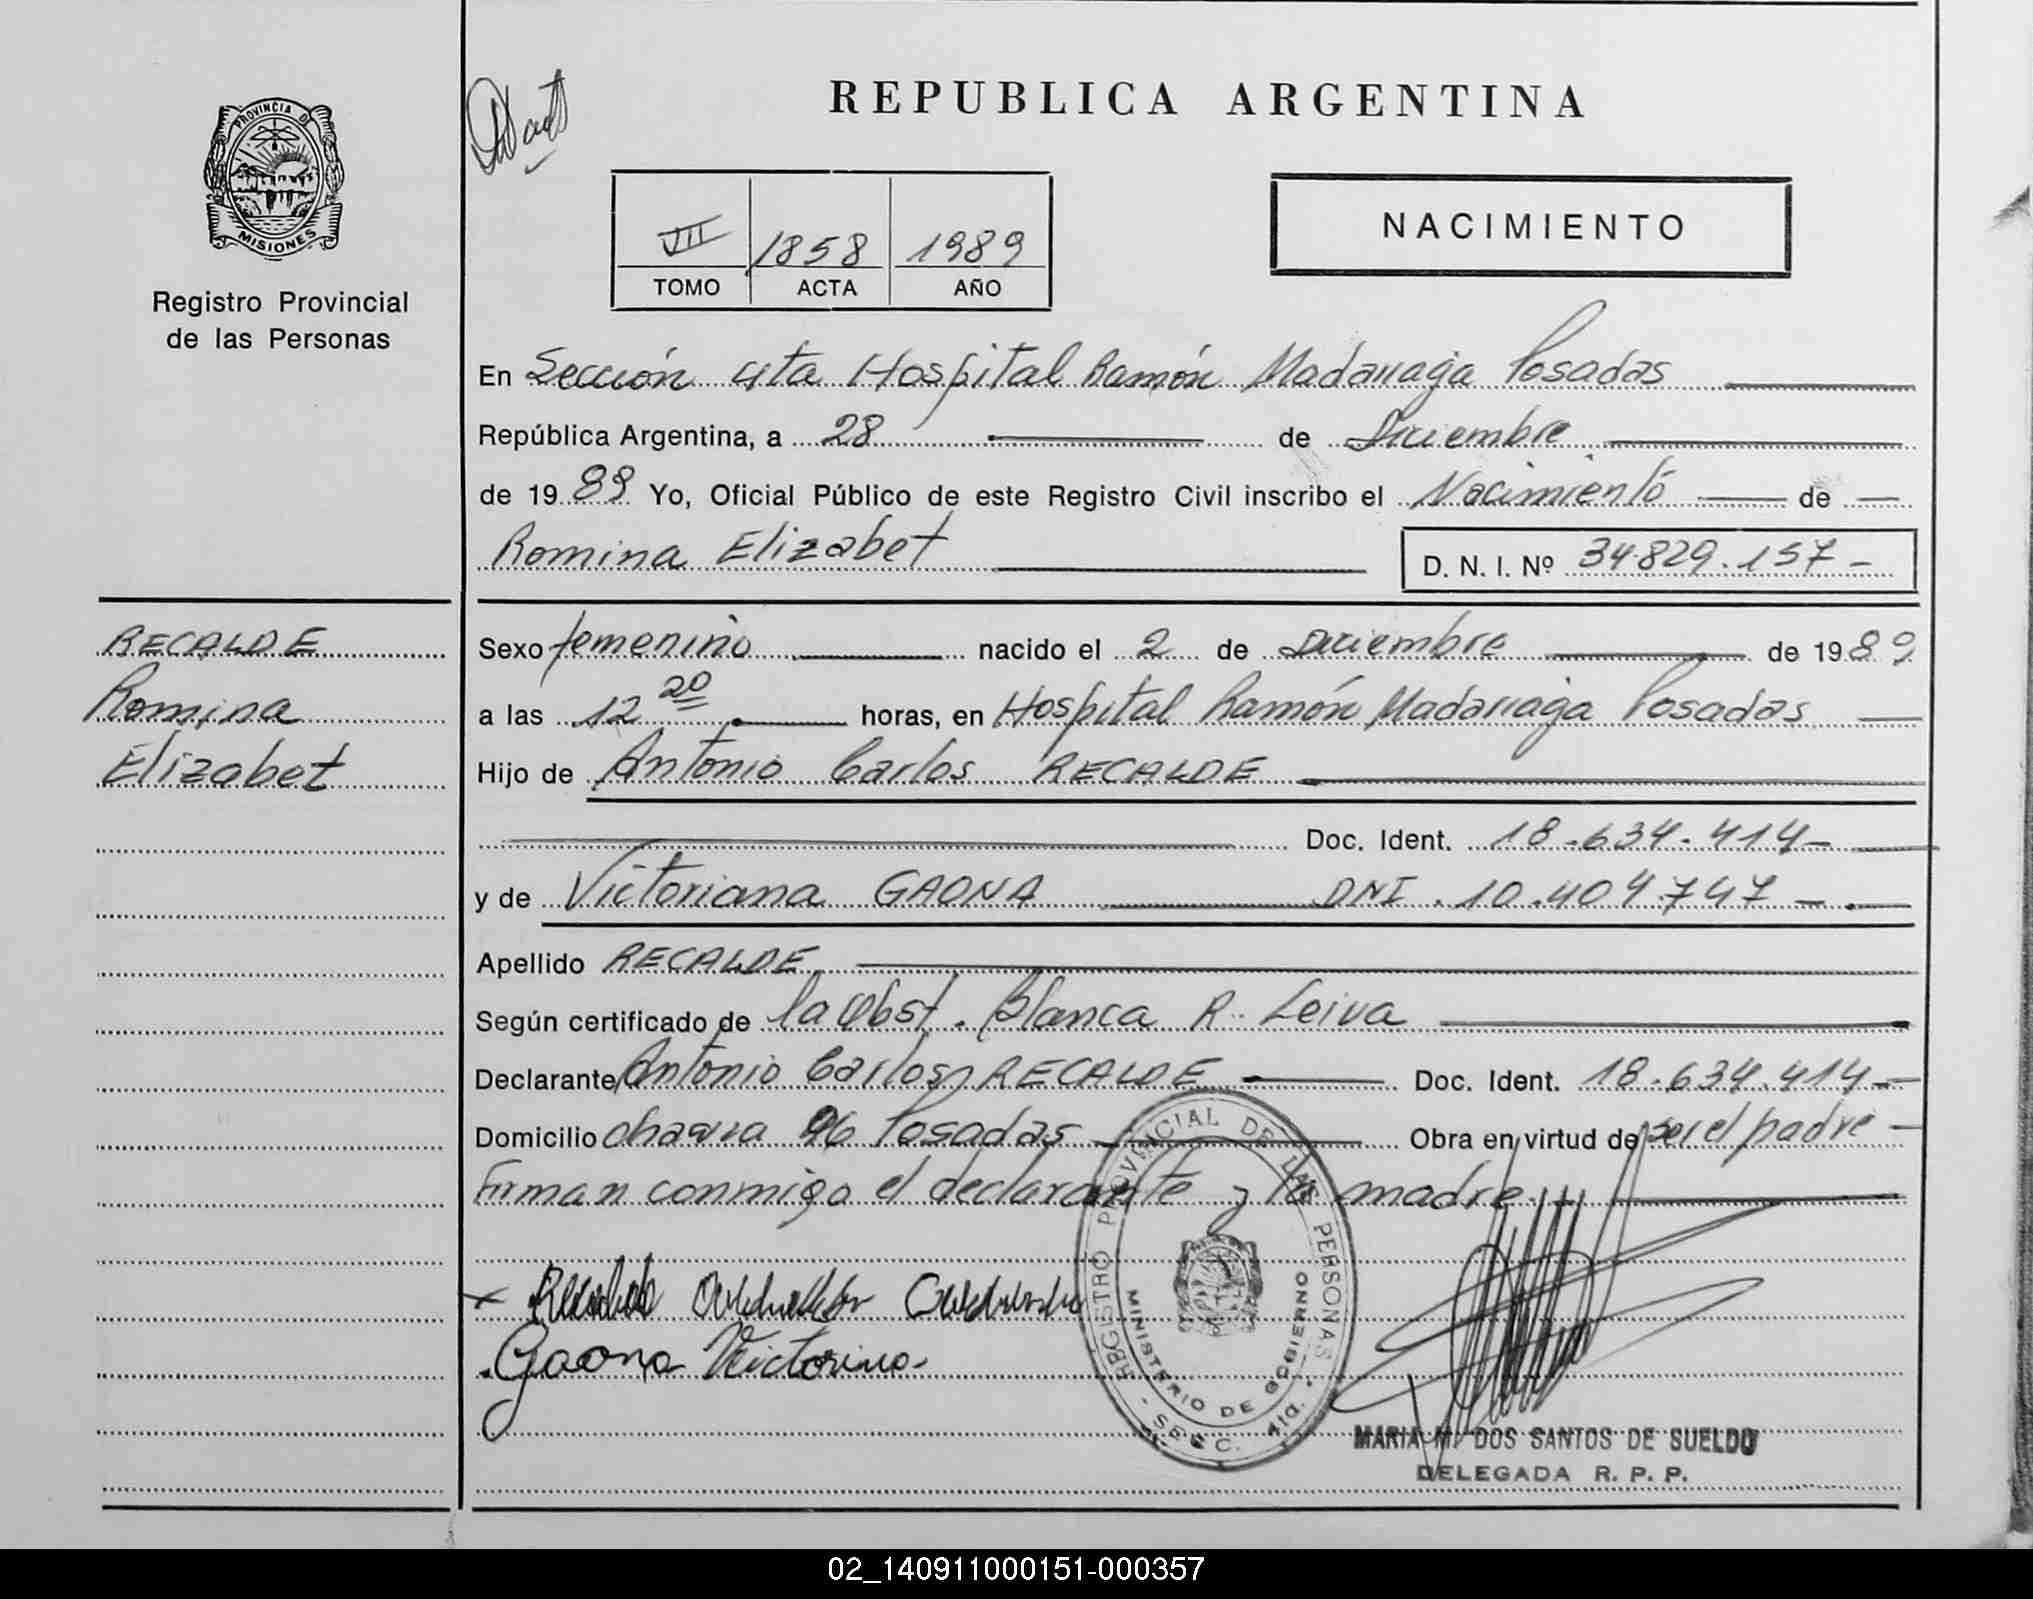 PROVINCIA DE
MISIONES
Registro Provincial
de las Personas
RECALDE
Romina
Elizabet
REPUBLICA ARGENTINA
NACIMIENTO
VII 1858 1989
TOMO ACTA AÑO
En Sección 4ta Hospital Ramón Madariaga Posadas
República Argentina, a 28 de Diciembre
de 1989 Yo, Oficial Público de este Registro Civil inscribo el Nacimiento de
Romina Elizabet D. N. I. Nº 34.829.157-
Sexo femenino nacido el 2 de Diciembre de 1989
a las 12 20 horas, en Hospital Ramón Madariaga Posadas
Hijo de Antonio Carlos RECALDE
Doc. Ident. 18.634.414-
y de Victoriana GAONA DNI. 10.404.747-
Apellido RECALDE
Según certificado de la Obst. Blanca R. Leiva
Declarante Antonio Carlos RECALDE Doc. Ident. 18.634.414-
Domicilio chacra 96 Posadas Obra en virtud de ser el padre
Firman conmigo el declarante y la madre
Gaona Victoriana
REGISTRO PROVINCIAL DE LAS PERSONAS
MINISTERIO DE GOBIERNO
- SECC. 4ta. -
MARIA M. DOS SANTOS DE SUELDO
DELEGADA R. P. P.
02_140911000151-000357